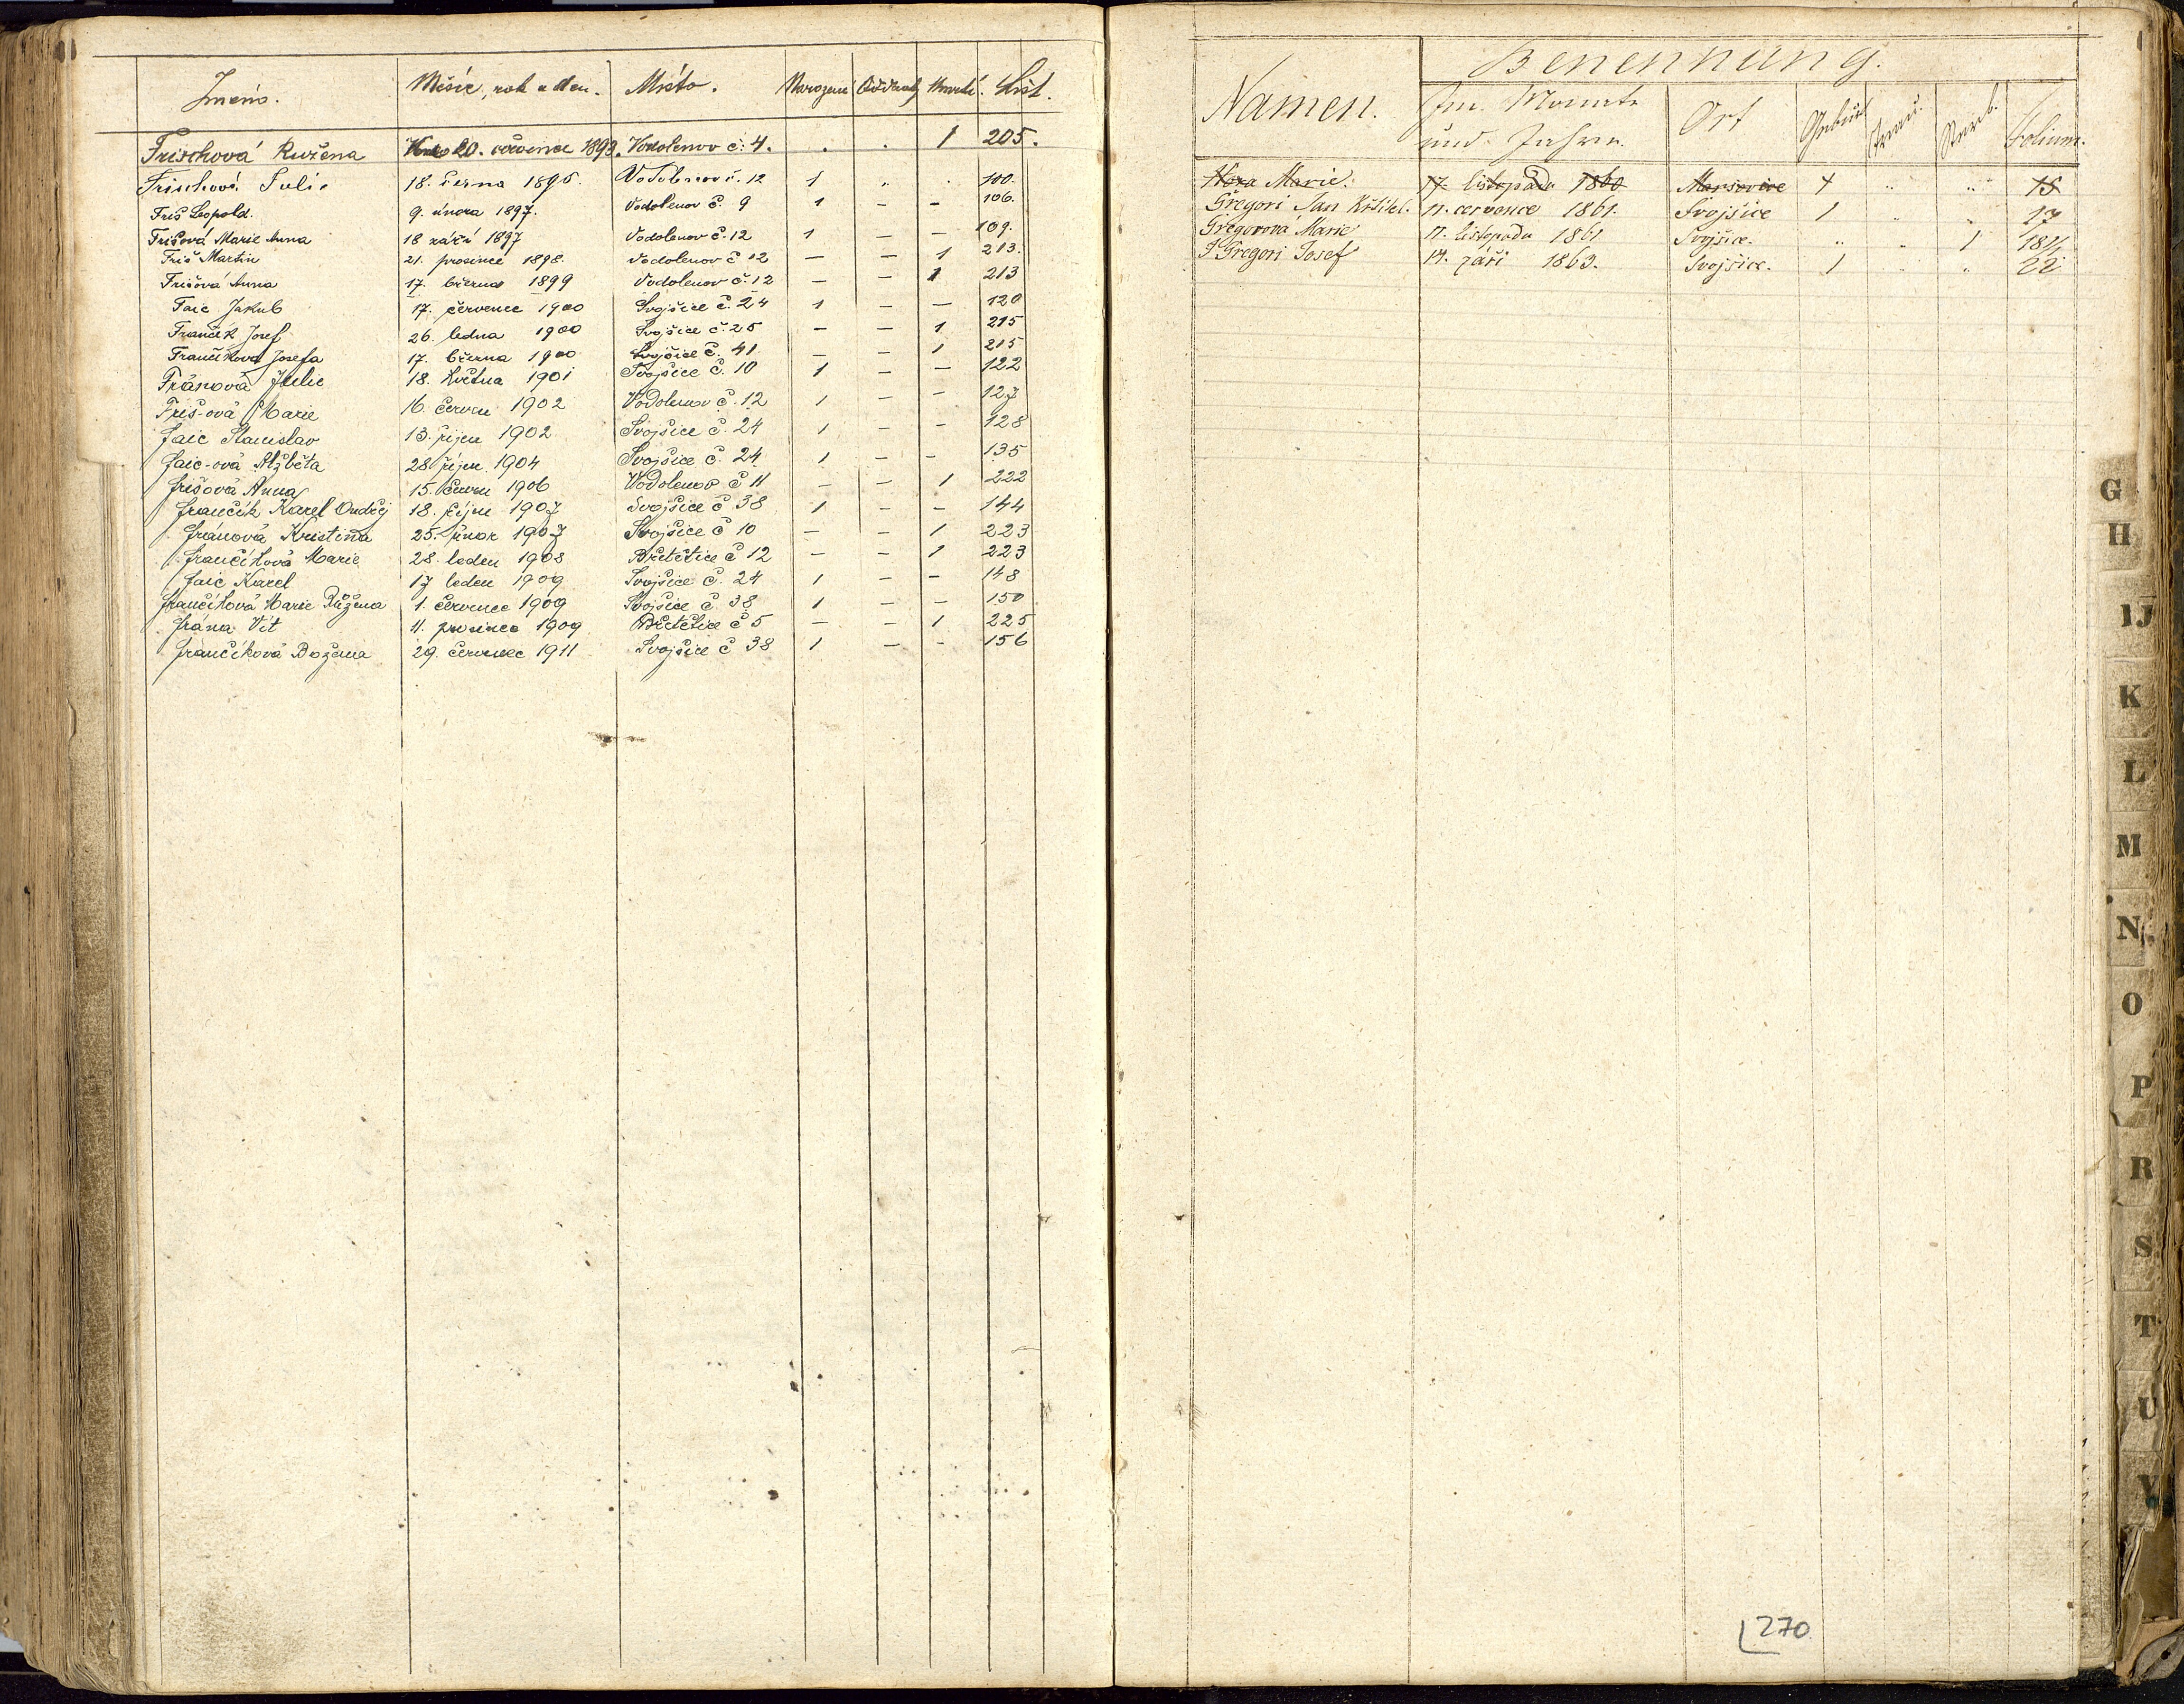 Jméno. Měsíc, rok a den. Místo. Narození Oddaní Umrtí. List.
Frischová Ružena 20. července 1893. Vodolenov č. 4. . . 1 205.
Frischová Julie 18. 1895. Vodolenov č. 12 1 „ . 100.
Friš Leopold. 9. února 1897. Vodolenov č. 9 1 – – 106.
Frišová Marie Anna 18 září 1897 Vodolenov č. 12 1 – – 109.
Friš Martin 21. prosince 1898. Vodolenov č 12 – – 1 213.
Frišová Anna 17. března 1899 Vodolenov č. 12 – 1 213
Faic Jakub 17. července 1900 Svojšice č. 24 1 – – 120
Frančík Josef 26. ledna 1900 Svojšice č. 25 – – 1 215
Frančíková Josefa 17. března 1900 Svojšice č. 41 – – 1 215
Fránová Julie 18. Května 1901 Svojšice č. 10 1 – – 122
Friš-ová Marie 16. červen 1902 Vodolenov č. 12 1 – – 127
Faic Stanislav 13. říjen 1902 Svojšice č. 24 1 – – 128
Faic-ová Alžběta 28 říjen. 1904 Svojšice č. 24 1 – – 135
Frišová Anna 15. červen 1906 Vodolenov č 11 – – 1 222
Frančík Karel Ondřej 18. říjen 1907 Svojšice č 38 1 – – 144
Fránová Kristina 25. únor 1907 Svojšice č 10 – – 1 223
Frančíková Marie 28. leden 1908 Břetětice č 12 – – 1 223
Faic Karel 17 leden 1909 Svojšice č. 24 1 – – 148
Frančíková Marie Růžena 1. červenec 1909 Svojšice č. 38 1 – – 150
Frána Vít 11. prosinec 1909 Břetětice č 5 – – 1 225
Frančíková Božena 29. červenec 1911 Svojšice č 38 1 – – 156
Benennung.
Namen. Im Monate Ort Geburt Trau. Sterb. Folium.
und Jahre.
Hora Marie. 17. listopadu 1860 1 „ „ 15
Gregori Jan Křtitel. 11. července 1861. Svojšice 1 „ „ 17
Gregorová Marie 17. listopadu 1861 Svojšice. „ „ 1 181/1
Gregori Josef 14. září 1863. Svojšice. 1 „ „ 22
G
H
IJ
K
L
M
N
O
P
R
S
T
U
V
270